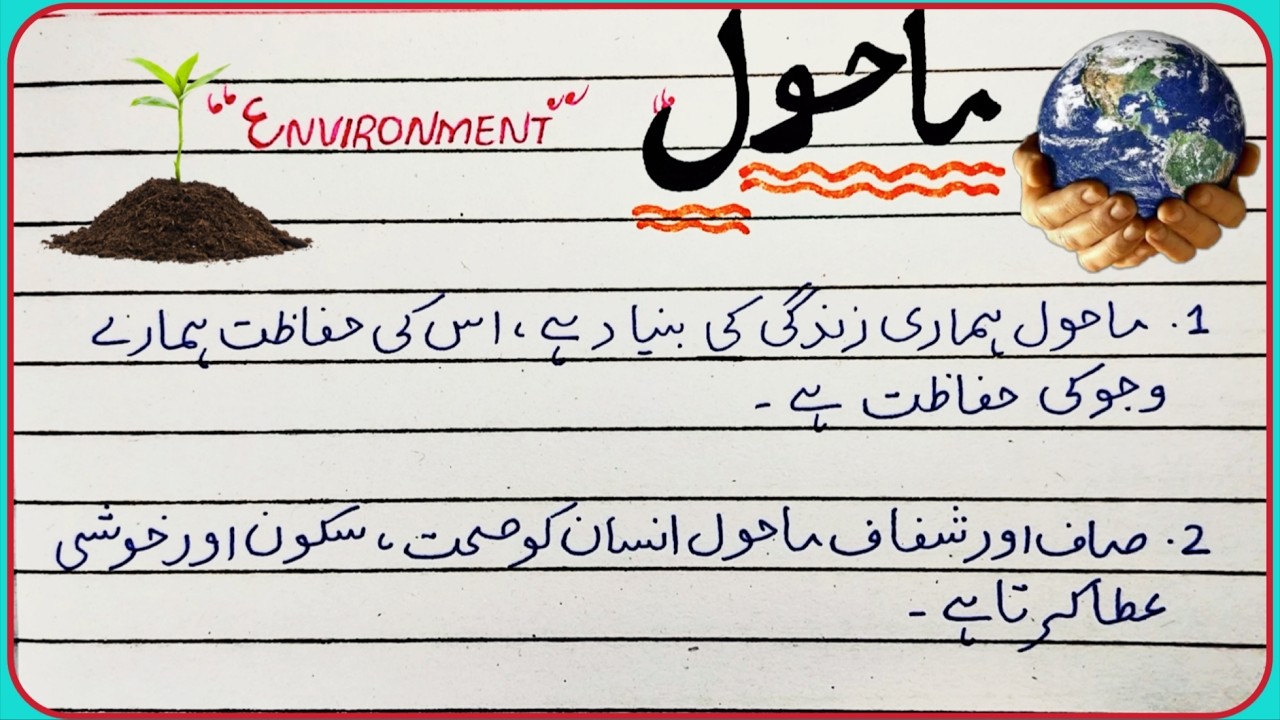 "ماحول"
"ENVIRONMENT"
1. ماحول ہماری زندگی کی بنیاد ہے، اس کی حفاظت ہمارے
وجوکی حفاظت ہے ۔
2. صاف اور شفاف ماحول انسان کو صحت، سکون اور خوشی
عطا کرتا ہے ۔